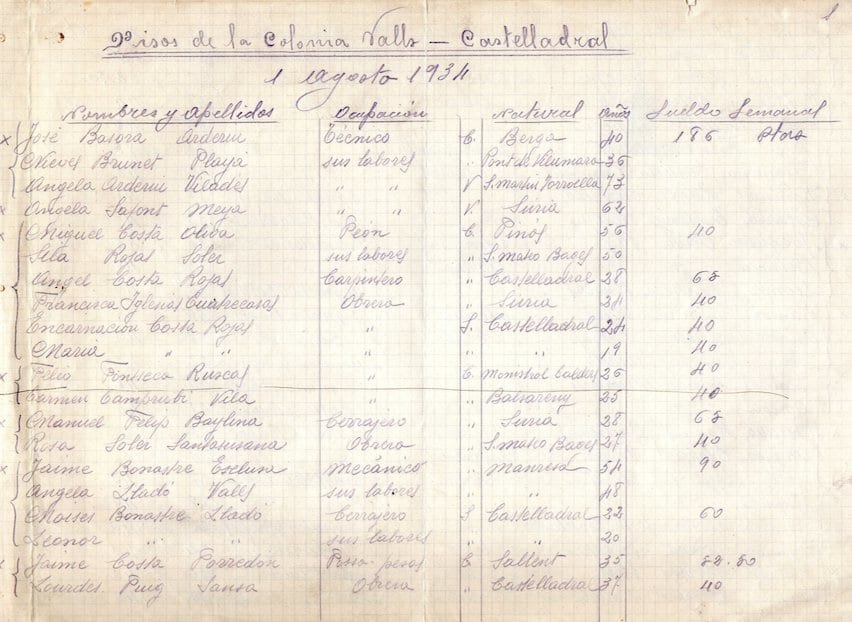 1
Pisos de la Colonia Valls — Castelladral
1 Agosto 1934
Nombres y Apellidos Ocupación Natural Años Sueldo Semanal
x José Basora Arderiu Técnico C. Berga 40 186 Ptas
Nieves Brunet Playá sus labores " Pont de Vilumara 36
Angela Arderiu Viladés " " V S. Martin Torroella 73
x Angela Safont Meya " " V. Suria 62
x Miguel Costa Oliva Peón C. Pinós 56 40
Rojas Soler sus labores " S. Mateo Bages 50
Angel Costa Rojas Carpintero " Castelladral 28 68
Francisca Iglesias Cuatrecasas Obrera " Suria 24 40
Encarnación Costa Rojas " S. Castelladral 24 40
Maria " " " " " 19 40
x Fonseca " C. Monistrol Calders 26 40
Carmen Camprubi Vila " " Balsareny 25 40
x Manuel Felip Baylina Cerrajero " Suria 28 68
Rosa Soler Santasusana Obrera " S. Mateo Bages 27 40
x Jaime Bonastre Mecánico " Manresa 54 90
Angela Lladó Valls sus labores " " 48
Moises Bonastre Lladó Cerrajero S Castelladral 22 60
Leonor " " sus labores " " 20
x Jaime Costa Porredón pesas C. Sallent 35 52.50
Lourdes Puig Sansa Obrera " Castelladral 37 40